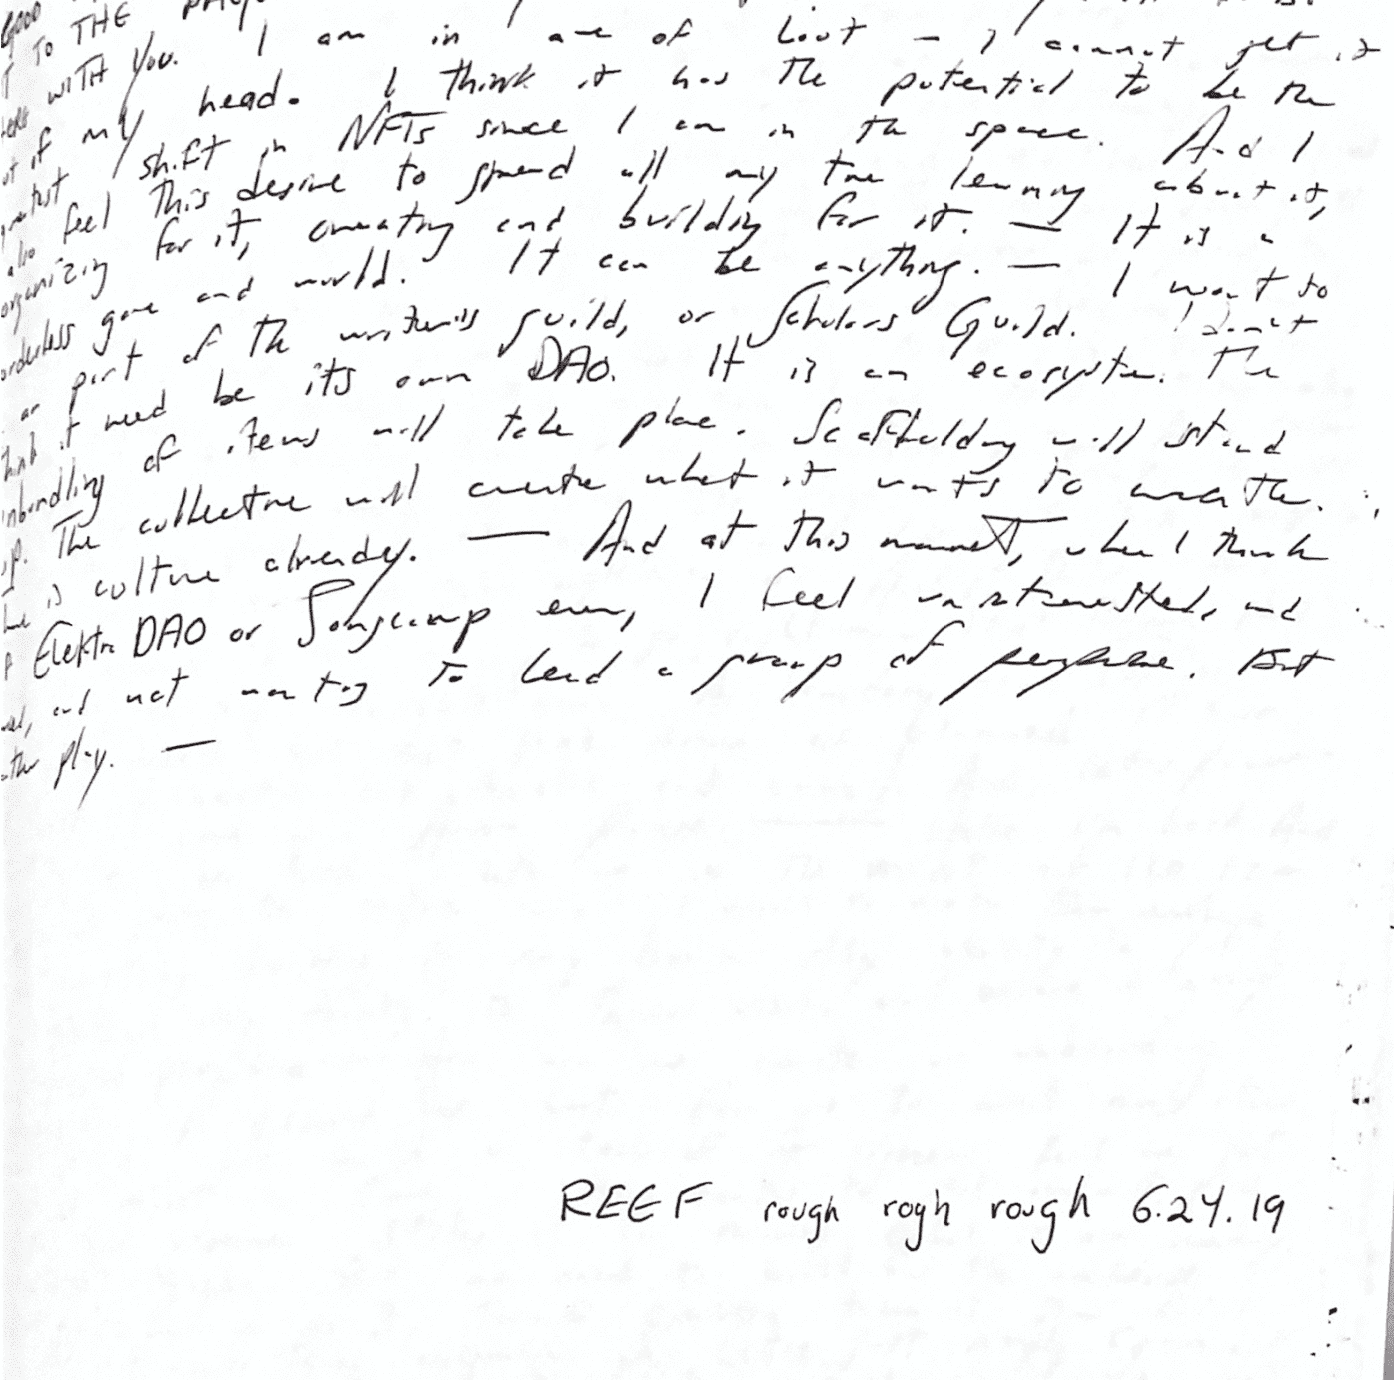 GOOD
TO THE
WITH YOU. I am in awe of Loot — I cannot get it
out if my head. I think it has the potential to be the
greatest shift in NFTs since I am in the space. And I
also feel this desire to spend all my time learning about it,
organizing for it, creating and building for it. — It is a
orderless game and world. It can be anything. — I want to
part of the writer's guild, or Scholars Guild. I don't
think it need be its own DAO. It is an ecosystem. The
unbundling of items will take place. Scaffolding will stand
up. The collective will create what it wants to create.
is culture already. — And at this moment, when I think
Elektra DAO or Songcamp even, I feel uninterested, and
and not wanting to lead a group of people. But
rather play. —
REEF rough rogh rough 6.24.19